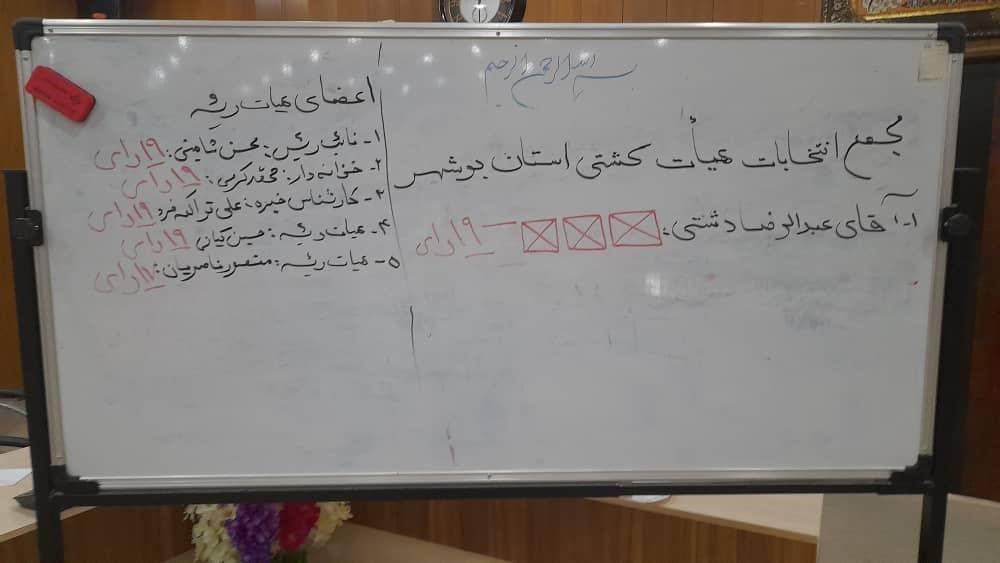 بسم الله الرحمن الرحیم
مجمع انتخابات هیأت کشتی استان بوشهر
۱- آقای عبدالرضا دشتی: ۱۹ رای
اعضای هیات ریٔسه
۱- نائب رئیس: محسن ثامنی: ۱۹ رای
۲- خزانه دار: محمد کرمی: ۱۹ رای
۳- کارشناس خبره: علی تراکمه فرد ۱۹ رای
۴- هیات رئیسه: حسین کیانی ۱۹ رای
۵- هیات رئیسه: منصور ناصریان: ۱۷ رای